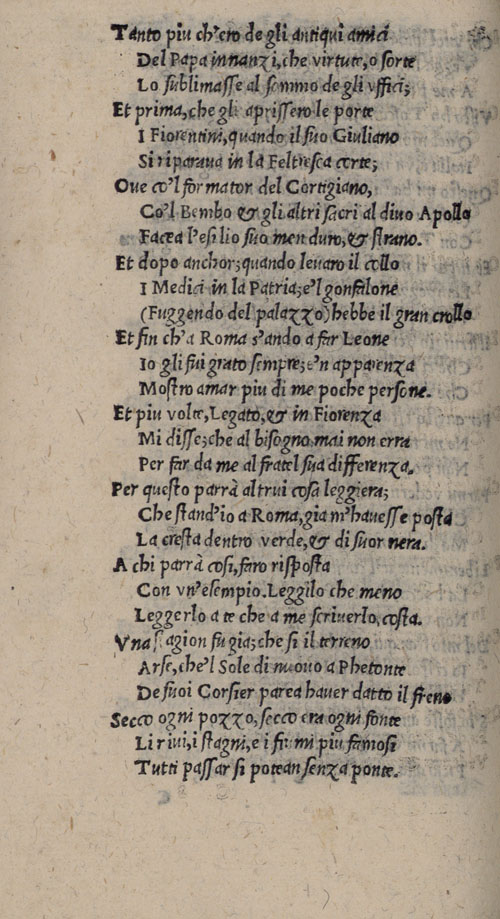 Tanto piu ch'ero de gli antiqui amici
Del Papa innanzi, che virtute, o sorte
Lo sublimasse al sommo de gli vffici;
Et prima, che gli aprissero le porte
I Fiorentini, quando il suo Giuliano
Si riparaua in la Feltresca corte;
Oue co'l formator del Cortigiano,
Co'l Bembo & gli altri sacri al diuo Apollo
Facea l'esilio suo men duro, & strano.
Et dopo anchor; quando leuaro il collo
I Medici in la Patria; e'l gonfalone
(Fuggendo del palazzo) hebbe il gran crollo
Et fin ch'a Roma s'ando a far Leone
Io gli fui grato sempre; e'n apparenza
Mostro amar piu di me poche persone.
Et piu volte, Legato, & in Fiorenza
Mi disse; che al bisogno mai non erra
Per far da me al fratel sua differenza.
Per questo parrà altrui cosa leggiera;
Che stand'io a Roma, gia m'hauesse posta
La cresta dentro verde, & di fuor nera.
A chi parrà cosi, faro risposta
Con vn'esempio. Leggilo che meno
Leggerlo a te che a me scriuerlo, costa.
Vna stagion fu gia; che si il terreno
Arse, che'l Sole di nuouo a Phetonte
De suoi Corsier parea hauer datto il freno
Secco ogni pozzo, secco era ogni fonte
Li riui, i stagni, e i fiumi piu famosi
Tutti passar si potean senza ponte.